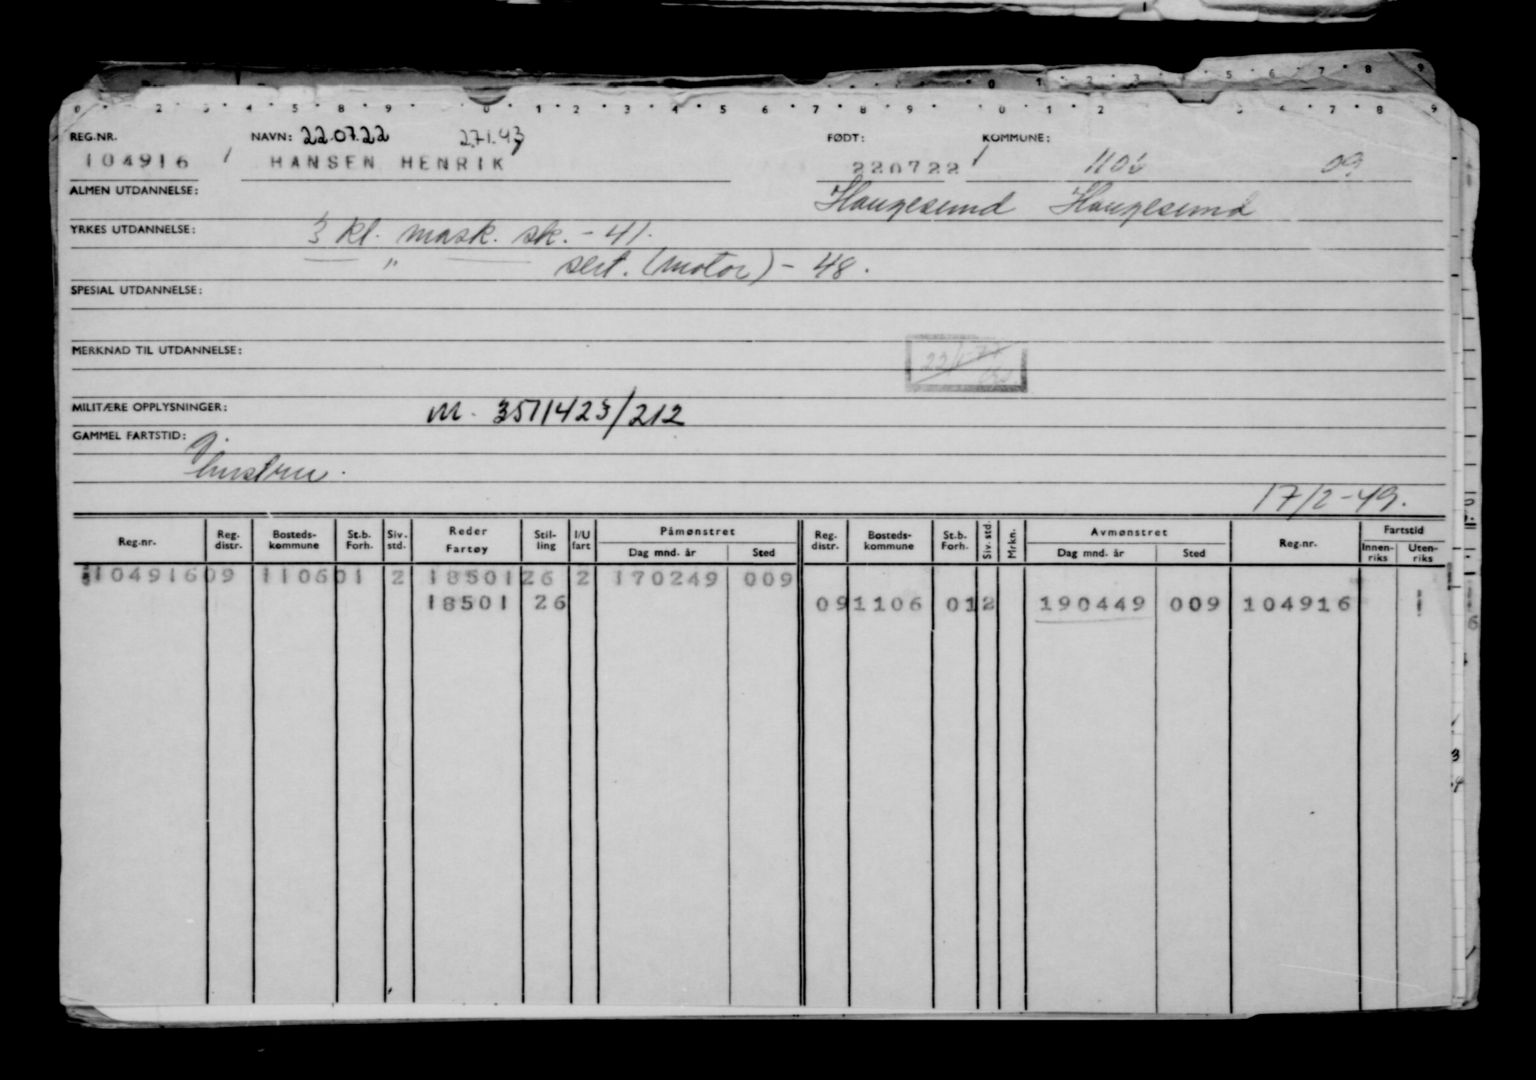 0 2 3 4 5 8 9 0 1 2 3 4 5 6 7 8 9 0 1 2 4 7 8 9
REG.NR. NAVN: 22.07.22 27.1.43 FØDT: KOMMUNE:
104916 HANSEN HENRIK 220722 1106 09
ALMEN UTDANNELSE: Haugesund Haugesund
YRKES UTDANNELSE: 3 kl. mask. sk. - 41.
" sert. (motor) - 48.
SPESIAL UTDANNELSE:
MERKNAD TIL UTDANNELSE:
MILITÆRE OPPLYSNINGER: M. 3571423/212
GAMMEL FARTSTID:
17/2-49.
Reg.nr. Reg. distr. Bosteds-kommune St.b. Forh. Siv. std. Reder Fartøy Stil-ling I/U fart Påmønstret Dag mnd. år Sted Reg. distr. Bosteds-kommune St.b. Forh. Siv. std. Mrkn. Avmønstret Dag mnd. år Sted Reg.nr. Fartstid Innen-riks Uten-riks
104916 09 1106 01 2 18501 26 2 170249 009
18501 26 09 1106 01 2 190449 009 104916 1